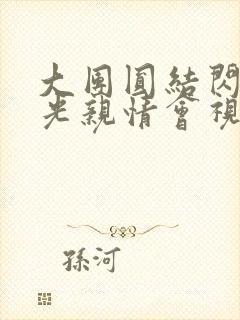 大團圓結閃
光親情會視
孫河